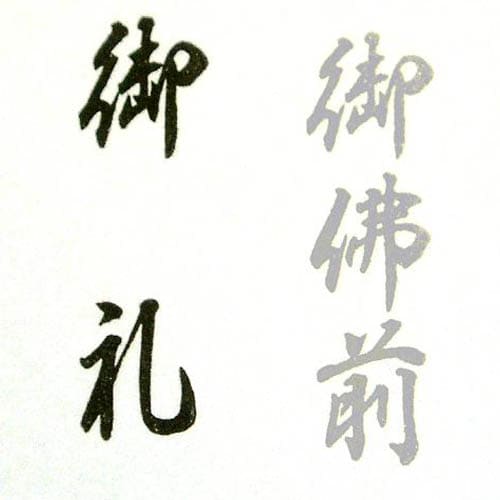 御佛前
御礼